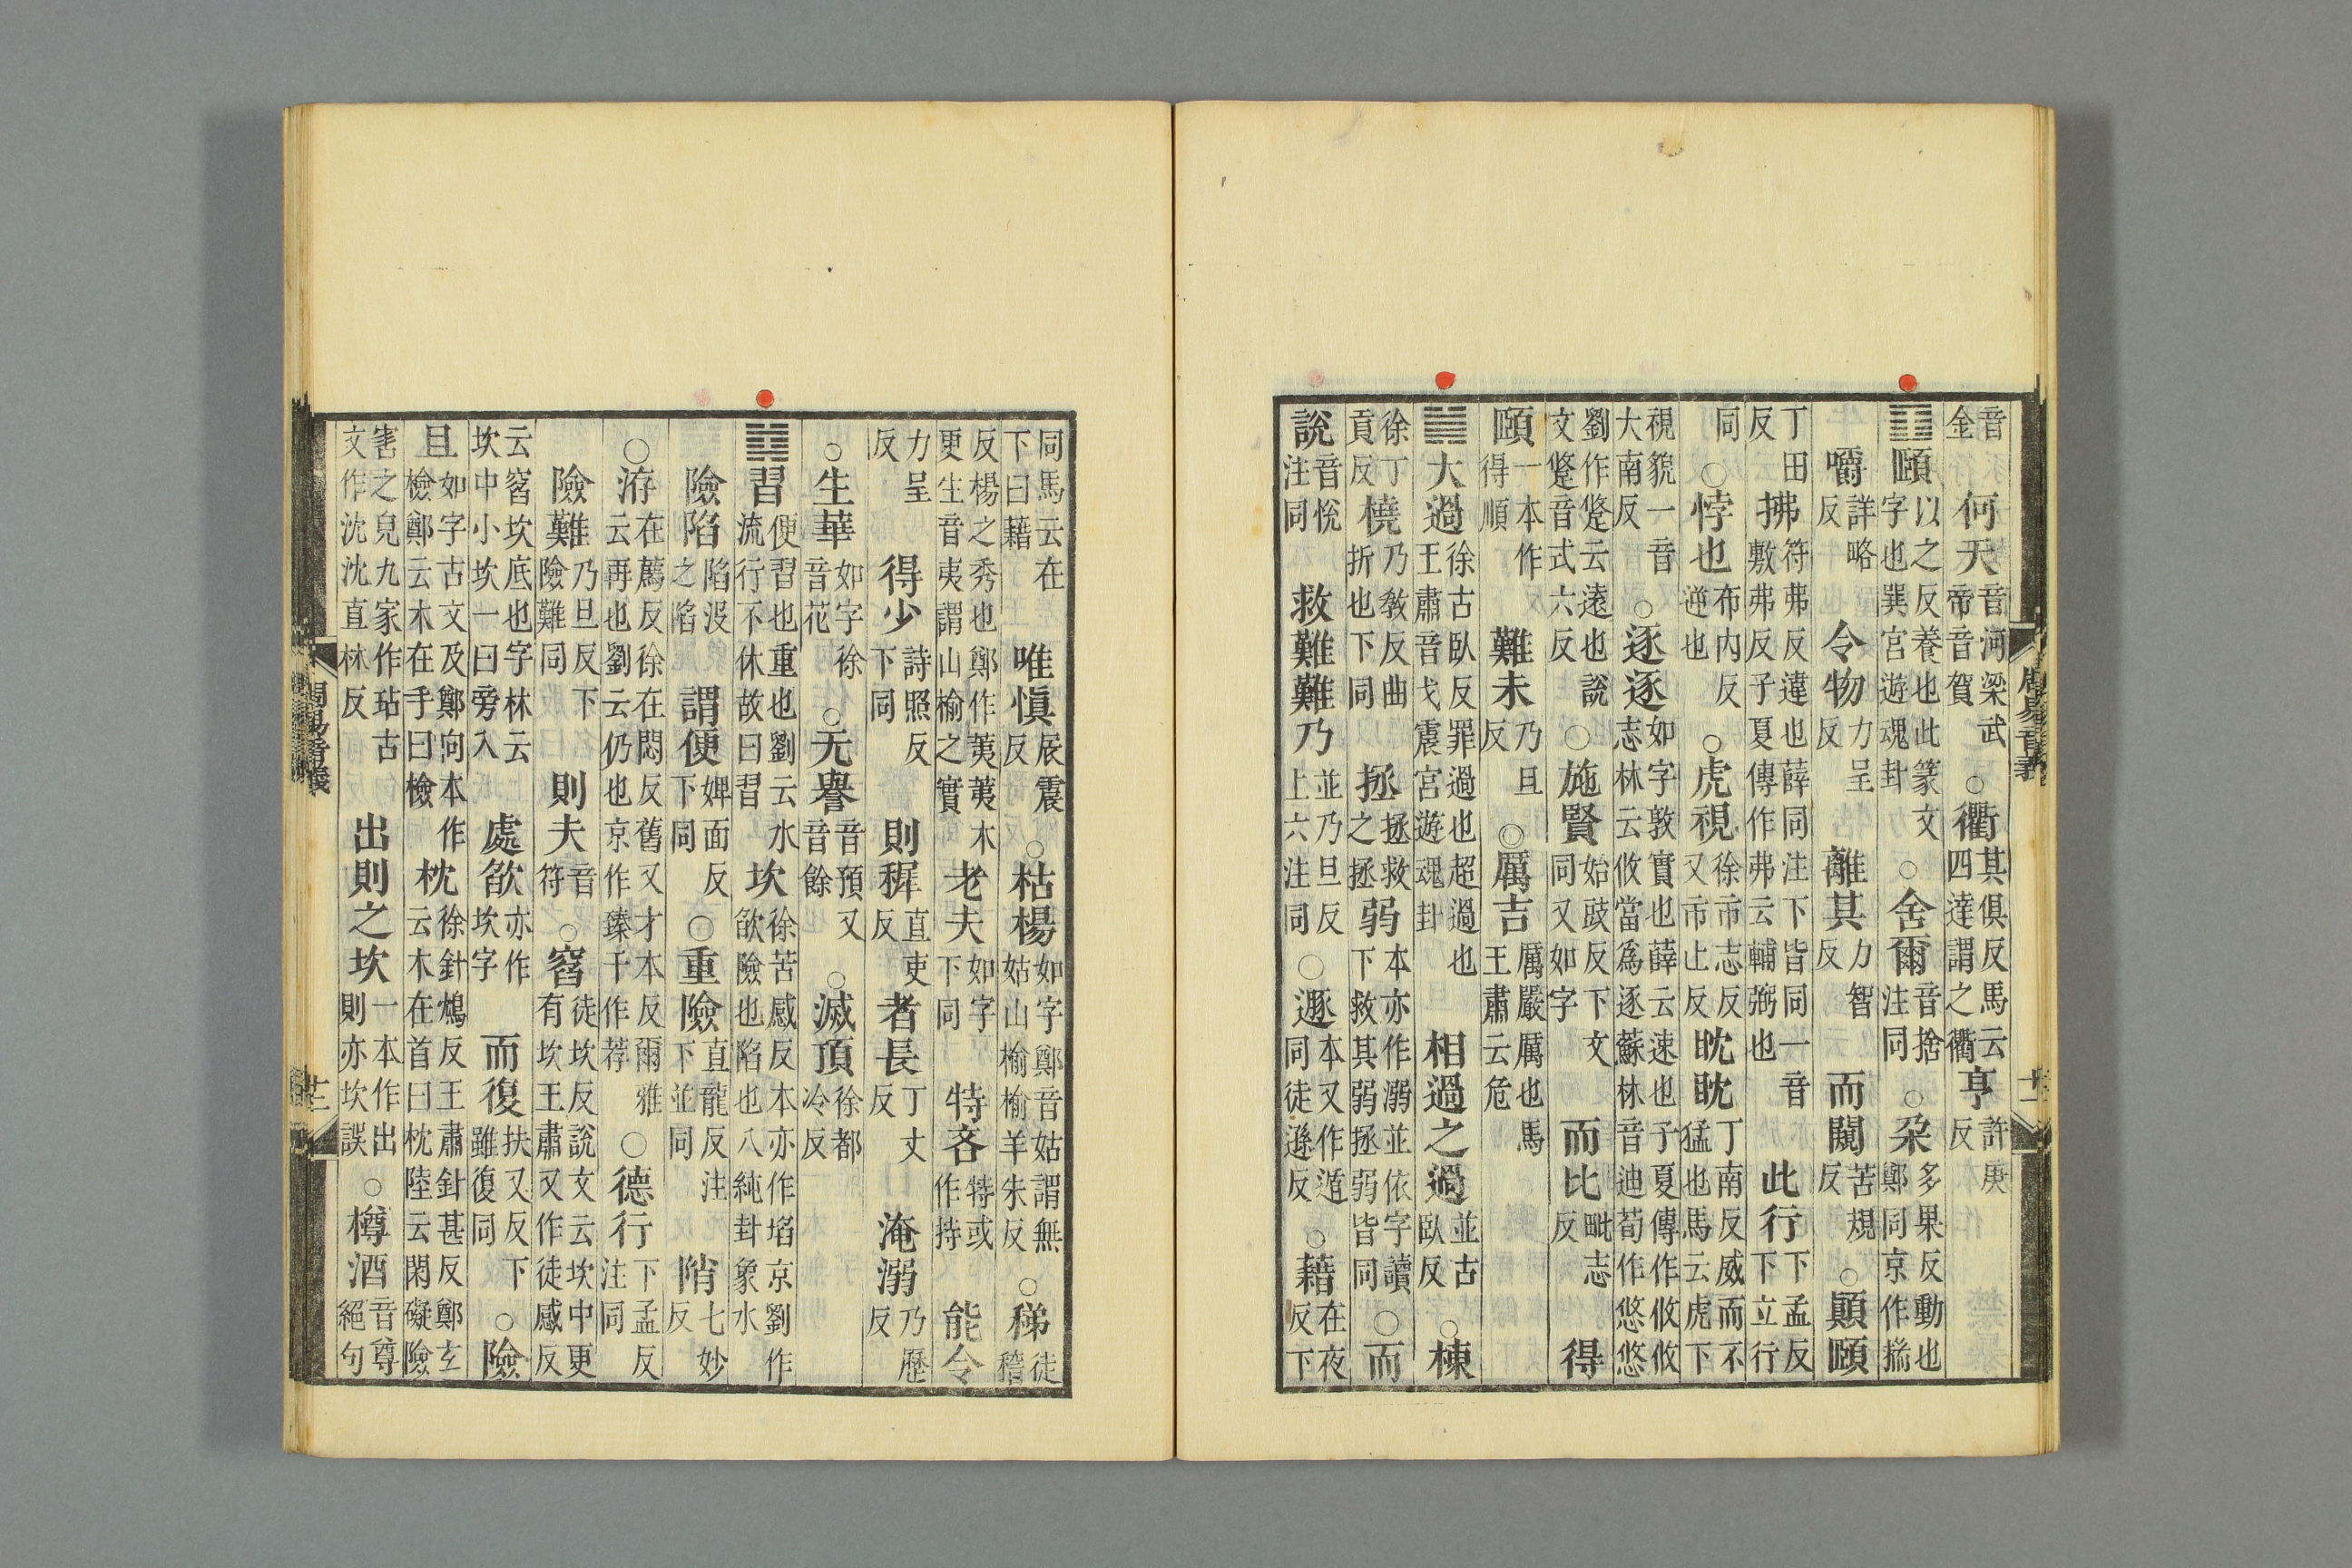 音金何天音河梁武帝音賀○衢其俱反馬云四達謂之衢亨許庚反
䷚頤以之反養也此篆文字也巽宮遊魂卦○舍爾音捨注同○朶多果反動也鄭同京作揣
嚼詳略反令物力呈反離其力智反而闚苦規反○顚頤
丁田反拂符弗反違也薛同注下皆同一音敷弗反子夏傳作弗云輔弼也此行下孟反下立行
同○悖也布内反逆也○虎視徐市志反又市止反眈眈丁南反威而不猛也馬云虎下
視貌一音大南反○逐逐如字敦實也薛云速也子夏傳作攸攸志林云攸當爲逐蘇林音迪荀作悠悠
劉作跾云遠也說文跾音式六反○施賢始豉反下文同又如字而比毗志反得
頤一本作得順難未乃旦反◎厲吉厲嚴厲也馬王肅云危
䷛大過徐古臥反罪過也超過也王肅音戈震宮遊魂卦相過之過並古臥反○棟
徐丁貢反橈乃敎反曲折也下同拯拯救之拯弱本亦作溺並依字讀下救其弱拯弱皆同○而
說音悅注同救難難乃並乃旦反上六注同○遯本又作遁同徒遜反○藉在夜反下
同馬云在下曰藉唯愼辰震反○枯楊如字鄭音姑謂無姑山榆榆羊朱反○稊徒稽
反楊之秀也鄭作荑荑木更生音夷謂山榆之實老夫如字下同特吝特或作持能令
力呈反得少詩照反下同則稺直吏反者長丁丈反淹溺乃歷反
○生華如字徐音花○无譽音預又音餘○滅頂徐都冷反
䷜習便習也重也劉云水流行不休故曰習坎徐苦感反本亦作埳京劉作欿險也陷也八純卦象水
險陷陷没之陷謂便婢面反下同○重險直龍反注下並同陗七妙反
○洊在薦反徐在悶反舊又才本反爾雅云再也劉云仍也京作臻干作荐○德行下孟反注同
險難乃旦反下險難同則夫音符○窞徒坎反說文云坎中更有坎王肅又作徒感反
云窞坎底也字林云坎中小坎一曰旁入處欿亦作坎字而復扶又反下雖復同○險
且如字古文及鄭向本作檢鄭云木在手曰檢枕徐針鴆反王肅針甚反鄭玄云木在首曰枕陸云閑礙險
害之皃九家作玷古文作沈沈直林反出則之坎一本作出則亦坎誤○樽酒音尊絕句
周易音義